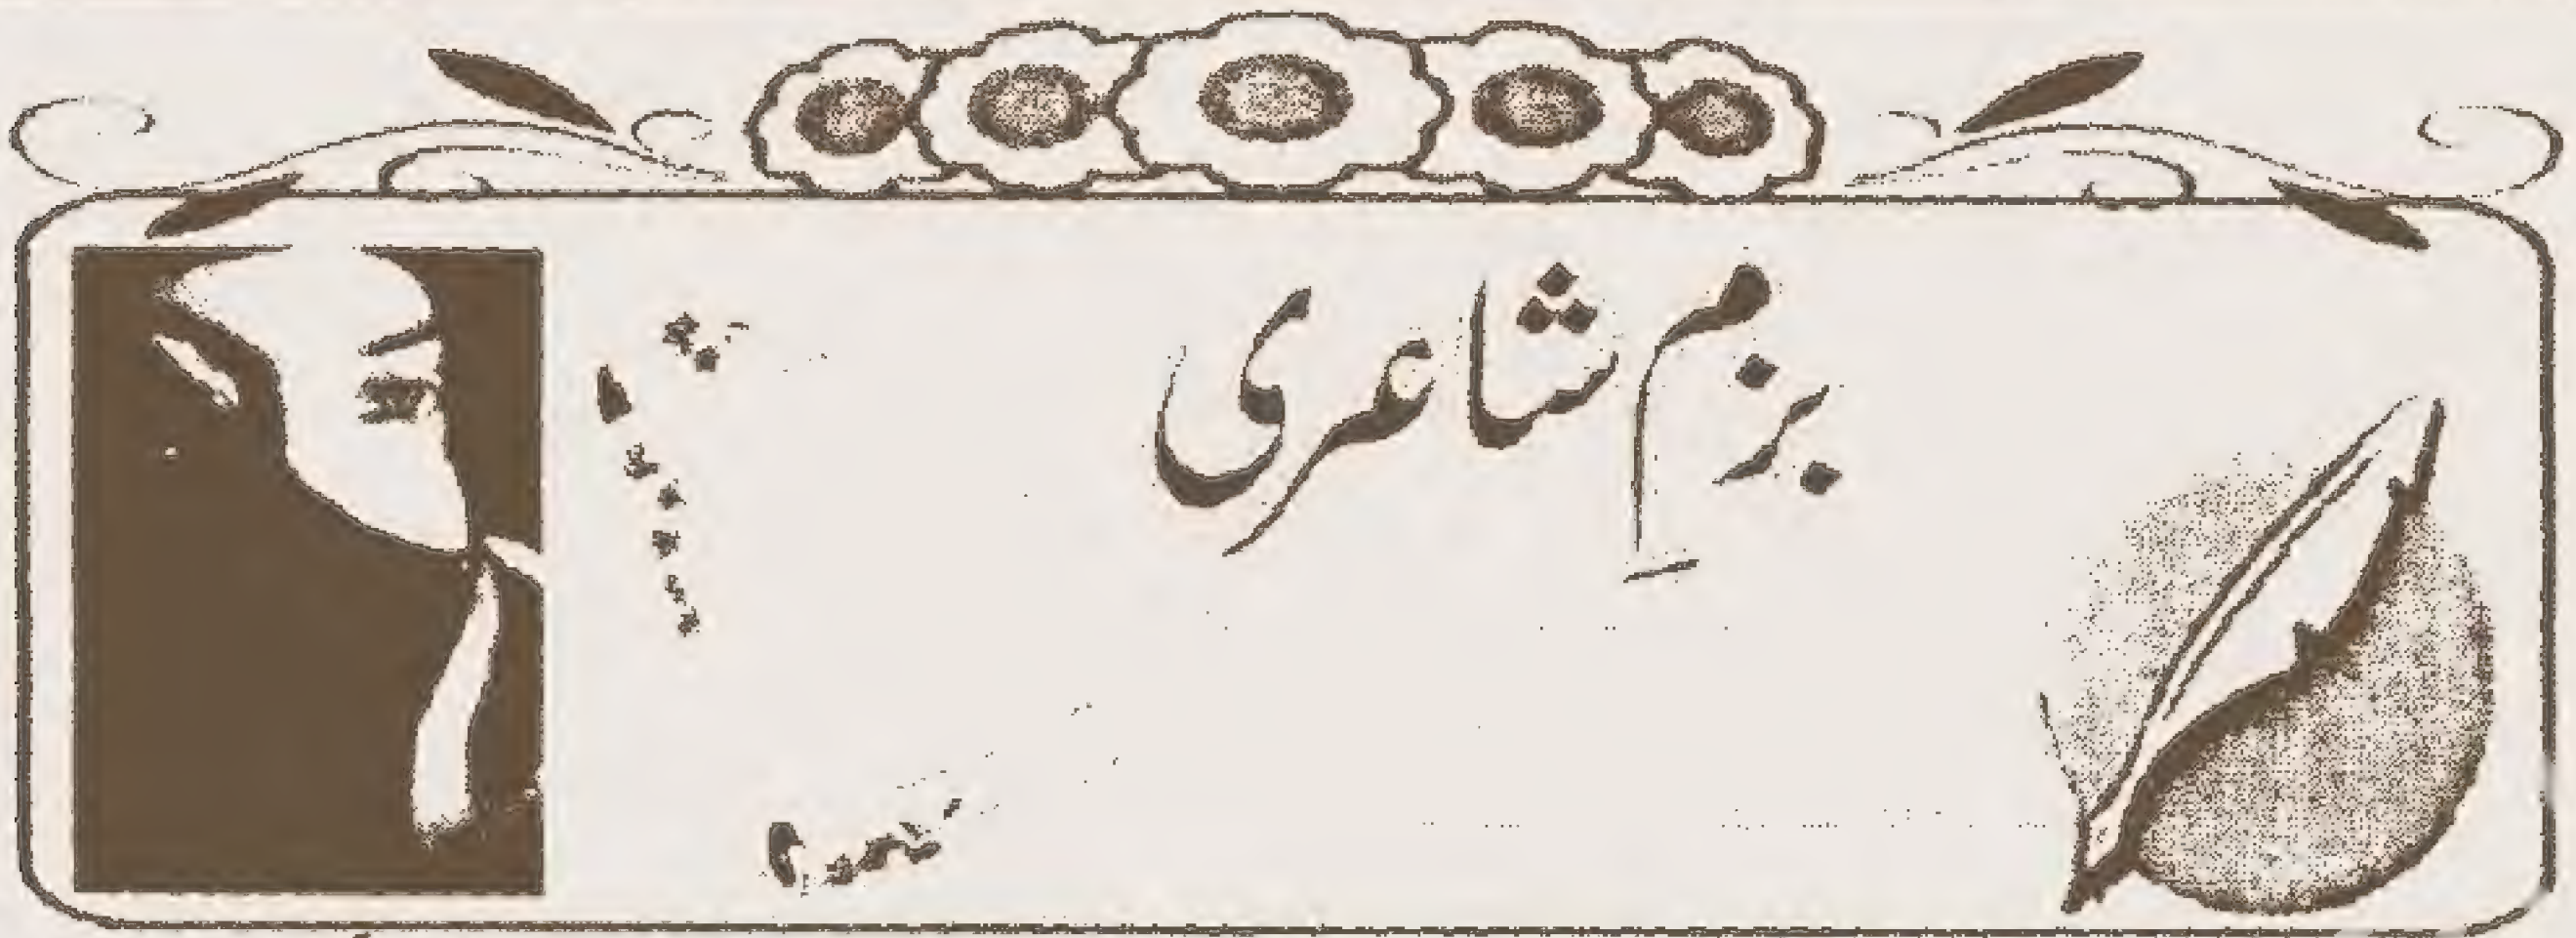 بزمِ شاعری